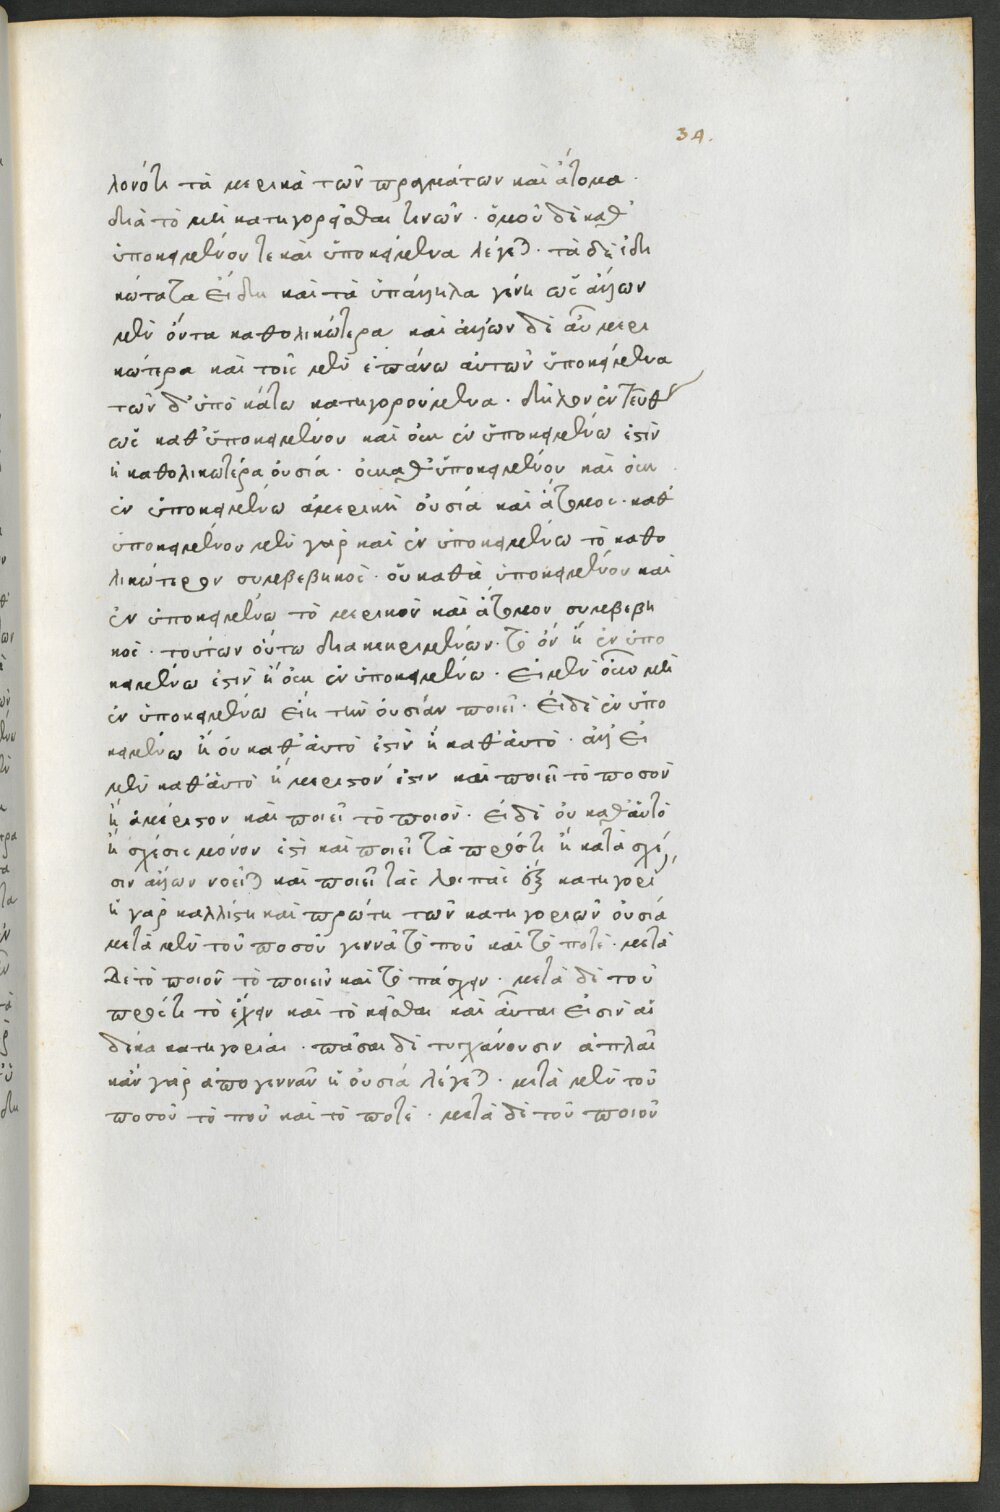 34.
λονότι τὰ μερικὰ τῶν πραγμάτων καὶ ἄτομα·
διὰ τὸ μὴ κατηγορεῖσθαι τινῶν· ὁμοῦ δὲ καθ'
ὑποκειμένου τε καὶ ὑποκείμενα λέγεται· τὰ δὲ ἰδι
κώτατα εἴδη καὶ τὰ ὑπάλληλα γένη ὡς ἄλλων
μὲν ὄντα καθολικώτερα καὶ ἄλλων δὲ αὖ μερι
κώτερα καὶ τοῖς μὲν ἐπάνω αὐτῶν ὑποκείμενα
τῶν δ' ὑπὸ κάτω κατηγορούμενα· δῆλον ἐντεῦθεν
ὡς καθ' ὑποκειμένου καὶ οὐκ ἐν ὑποκειμένω ἐστὶν
ἡ καθολικωτέρα οὐσία· οὐ καθ' ὑποκειμένου καὶ οὐκ
ἐν ὑποκειμένω ἡ μερικὴ οὐσία καὶ ἄτομος· καθ'
ὑποκειμένου μὲν γὰρ καὶ ἐν ὑποκειμένω τὸ καθο
λικώτερον συμβεβηκὸς· οὐ καθὰ ὑποκειμένου καὶ
ἐν ὑποκειμένω τὸ μερικὸν καὶ ἄτομον συμβεβη
κὸς· τούτων οὕτω διακεκριμένων· τὸ ὂν ἢ ἐν ὑπο
κειμένω ἐστὶν ἢ οὐκ ἐν ὑποκειμένω· εἰ μὲν οὖν μὴ
ἐν ὑποκειμένω εἴη τὴν οὐσίαν ποιεῖ· εἰ δὲ ἐν ὑπο
κειμένω ἢ οὐ καθ' αὑτό ἐστὶν ἢ καθ' αὑτό· ἀλλ' εἰ
μὲν καθ' αὑτὸ ἢ μεριστόν ἐστιν καὶ ποιεῖ τὸ ποσὸν
ἢ ἀμέριστον καὶ ποιεῖ τὸ ποιὸν· εἰ δὲ οὐ καθ' αὑτὸ
ἢ σχέσις μόνον ἐστὶ καὶ ποιεῖ τὰ πρός τι ἢ κατὰ σχέ
σιν ἄλλων νοεῖται καὶ ποιεῖ τὰς λοιπὰς ἓξ κατηγορί
ἡ γὰρ καλλίστη καὶ πρώτη τῶν κατηγοριῶν οὐσία
μετὰ μὲν τοῦ ποσοῦ γεννᾶ τὸ ποῦ καὶ τὸ ποτὲ· μετὰ
δὲ τὸ ποιοῦ τὸ ποιεῖν καὶ τὸ πάσχειν· μετὰ δὲ τοῦ
πρός τι τὸ ἔχειν καὶ τὸ κεῖσθαι καὶ αὗται εἰσὶν αἱ
δέκα κατηγορίαι· πᾶσαι δὲ τυγχάνουσιν ἁπλαῖ
κἂν γὰρ ἀπογεννᾶν ἡ οὐσία λέγεται· μετὰ μὲν τοῦ
ποσοῦ τὸ ποῦ καὶ τὸ ποτὲ· μετὰ δὲ τοῦ ποιοῦ